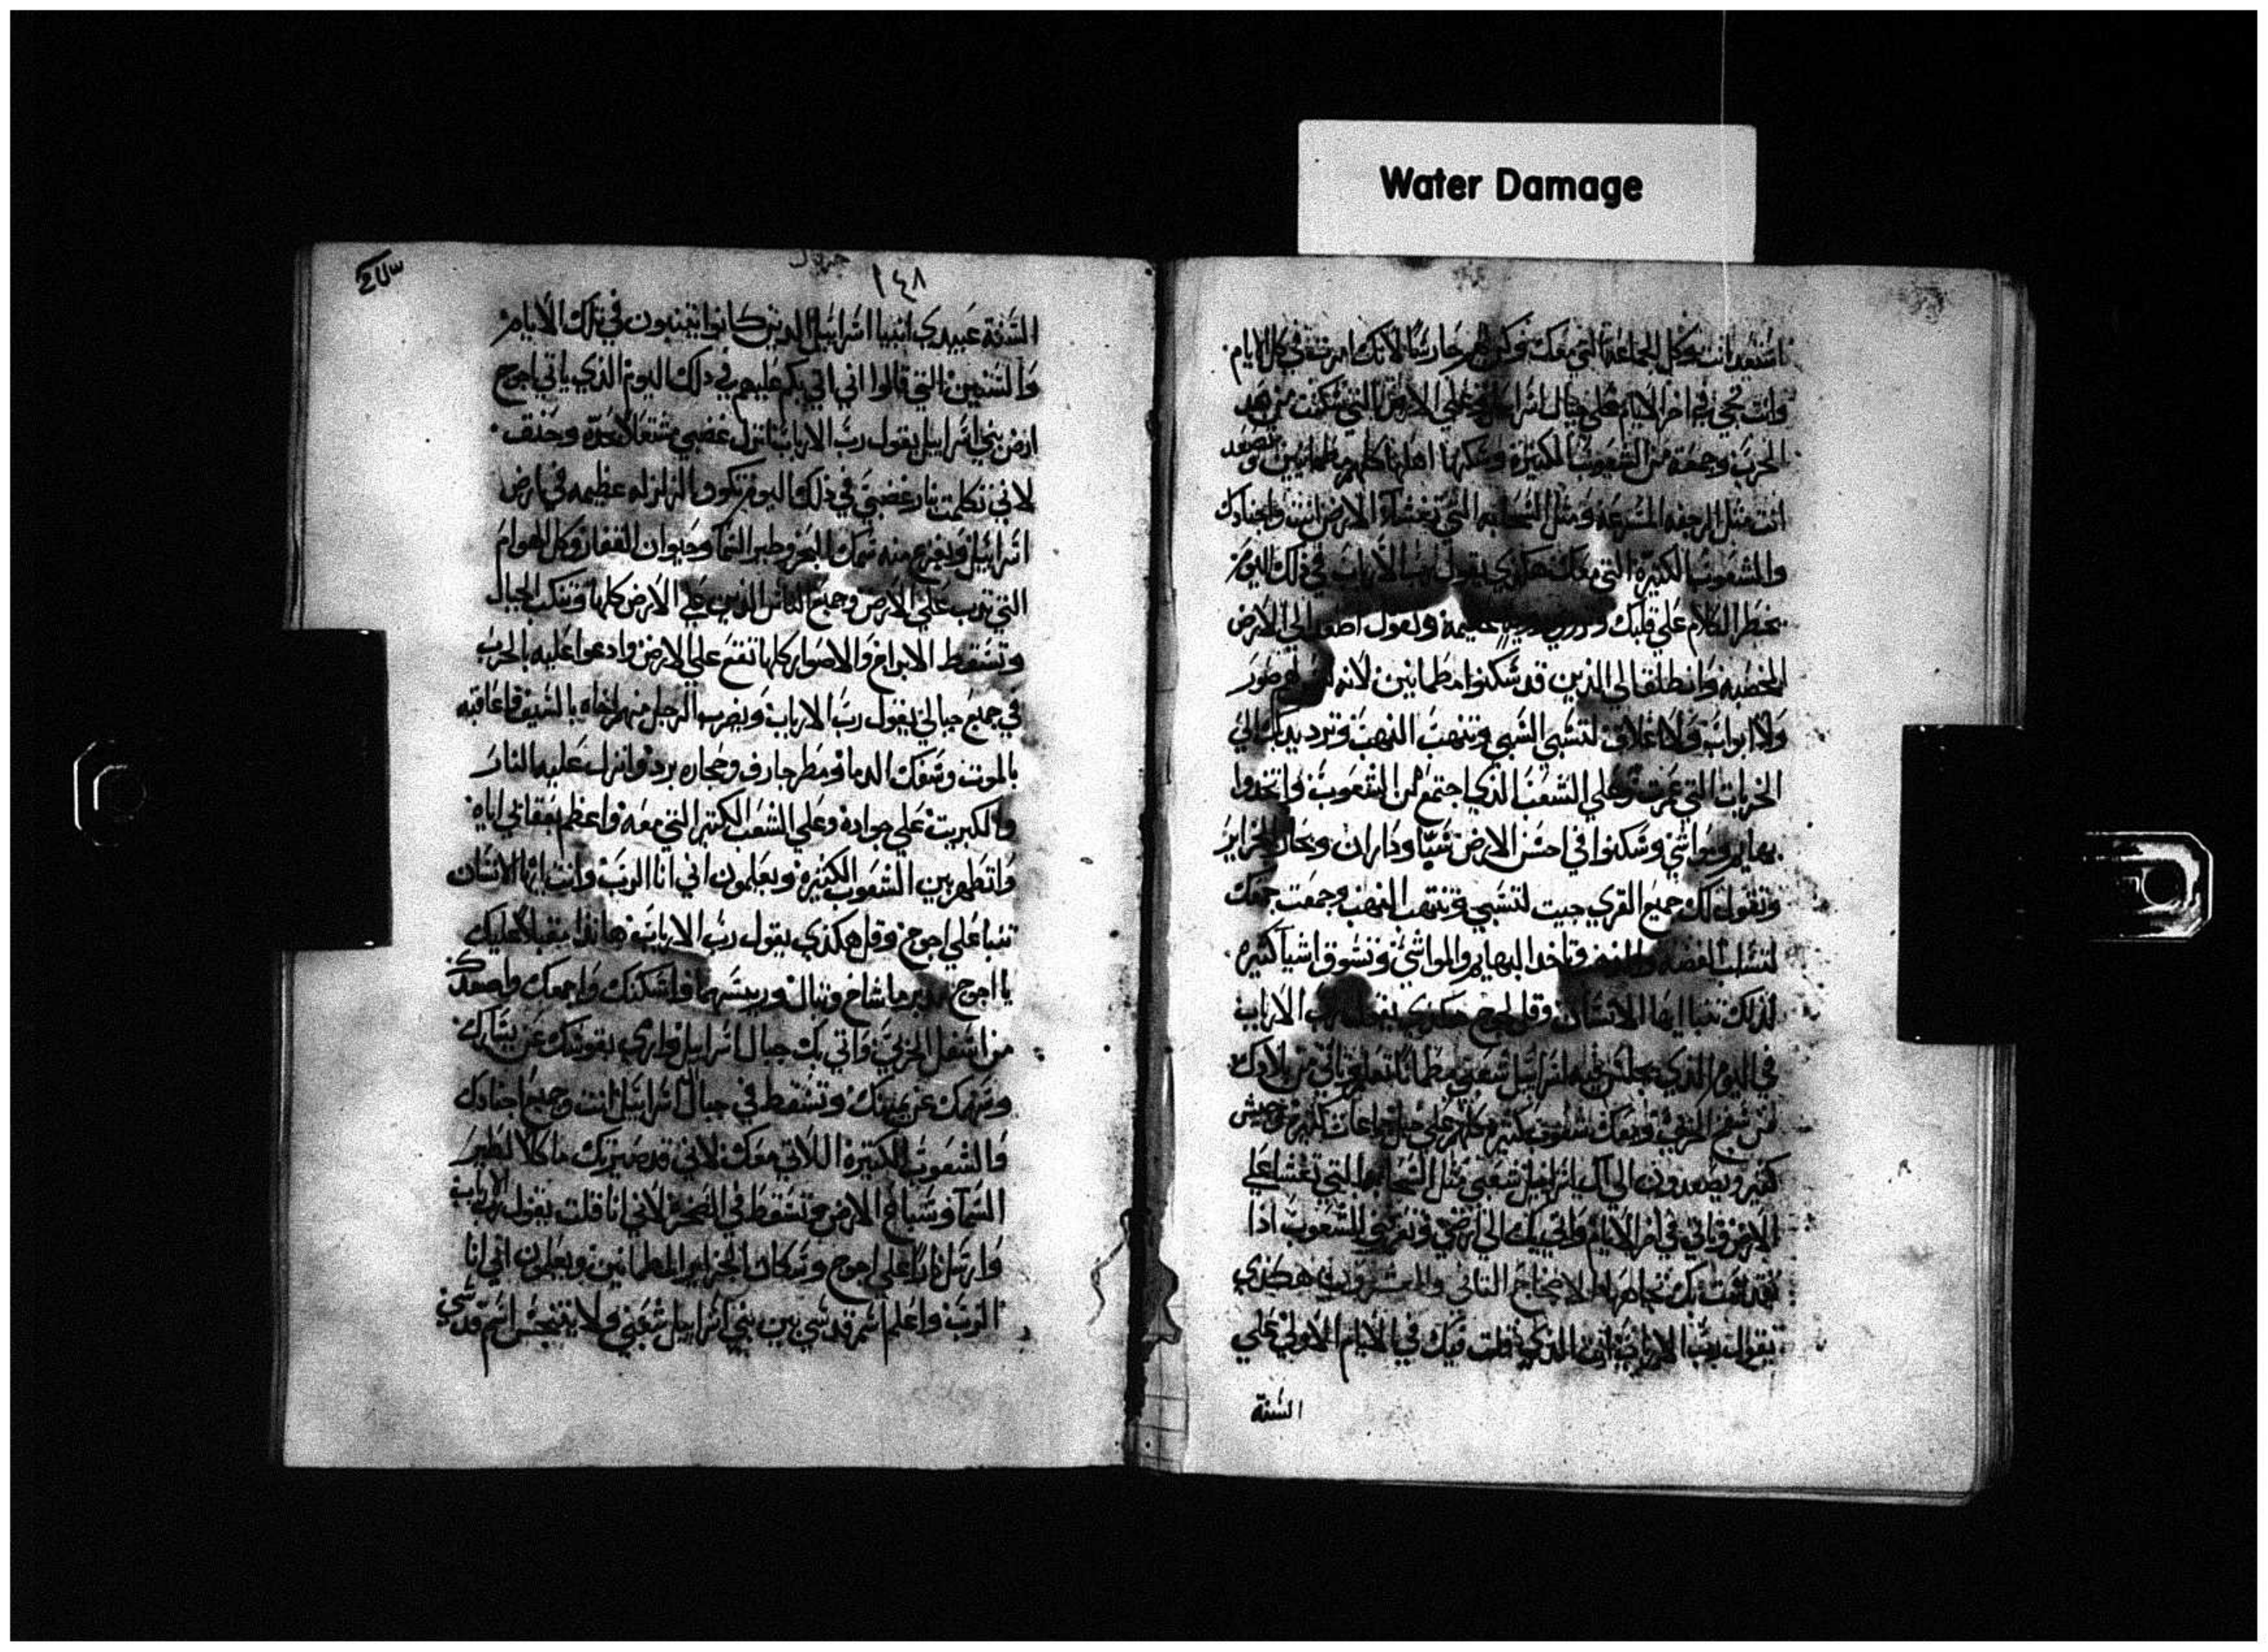 Water Damage
استعد انت وكل الجماعة التي معك وكن لهم حارسًا لانك امر تتقي كل الايام
وانت تجي في اخر الايام علي جبال اسراييل علي الارض التي سكنت من بعد
الحرب وجمعة من الشعوب الكثيرة وسكنها اهلها كلهم مطمانيين وتصعد
انت مثل الرجفه المسرعه ومثل السحابه التي تغشا الارض انت واجنادك
والشعوب الكثيرة التي معك هكذي يقول رب الارباب في ذلك اليوم
يخطر الكلام علي قلبك عظيمة وتقول اصعد الي الارض
المخصبه وانطلق الي الذين قد سكنوا مطمانيين لانه ليس لهم صور
ولا ابواب ولا اغلاق لتسبي السبي وتنهب النهب وترد يدك الي
الخربات التي عمرت وعلي الشعب الذي اجتمع من الشعوب واتخذوا
بهايم ومواشي وسكنوا في احسن الارض سبا وداران وتجار الجزاير
وتقول لك جميع القري جيت لتسبي وتنتهب النهب وجمعت جمعك
لتسلب الفضه والذهب وتاخذ البهايم والمواشي وتسوق اشيا كثيره
لذلك تنبا ايها الانسان وقل لاجوج هكذي يقول رب الارباب
في اليوم الذي يجلس فيه اسراييل شعبي مطمانًا تعلم وتاتي من بلادك
من سفح الجربي ومعك شعوب كثيرة كلهم علي خيل جماعات كثيرة وجيش
كثير ويصعدون الي ال اسراييل شعبي مثل السحابه التي تغشا علي
الارض وتاتي في اخر الايام واتي بك الي ارضي وتعرفني الشعوب اذا
تقدست بك تجاههم هكذي
يقول رب الارباب انت الذي قلت فيك في الايام الاولي علي
السنة
١٤٨
السنة عبيدي انبيا اسراييل الذين كانوا يتنبون في تلك الايام
والسنين التي قالوا اني اتي بكم عليهم في ذلك اليوم الذي ياتي اجوج
ارض بني اسراييل يقول رب الارباب انزل غضبي مشتعلا بحدة وحنق
لاني تكلمت بنار غضبي في ذلك اليوم تكون الزلزله عظيمه في ارض
اسراييل ويفزع منه سمك البحر وطير السما وحيوان القفار وكل الهوام
التي تدب علي الارض وجميع الناس الذين علي الارض كلها وتنكب الجبال
وتسقط الابراج والاصوار كلها تقع علي الارض وادعوا عليه بالحرب
في جميع جبالي يقول رب الارباب ويضرب الرجل منهم اخاه بالسيف فاعاقبه
بالموت وسفك الدما ومطر جارف وحجارة برد وانزل عليه النار
والكبريت علي جوادة وعلي الشعب الكثير التي معه واعظم بعقابي اياه
واتطهر بين الشعوب الكثيرة ويعلمون اني انا الرب وانت ايها الانسان
تنبا علي اجوج وقل هكذي يقول رب الارباب هانذا مقبلا عليك
يا اجوج مدبر ماشاخ وتبال وريسهما واسكنك واجمعك واصعدك
من اسفل الجربي واتي بك جبال اسراييل وارمي بقوسك عن يسارك
وسهمك عن يمينك وتسقط في جبال اسراييل انت وجميع اجنادك
والشعوب الكثيرة اللاتي معك لاني قد صيرتك ماكلا لطير
السما وسباع الارض وتسقط في الصحرا لاني انا قلت يقول رب الارباب
وارسل نارا علي اجوج وسكان الجزاير المطمانين ويعلمون اني انا
الرب واعلم اسم قدسي بين بني اسراييل شعبي ولا يتنجس اسم قدسي